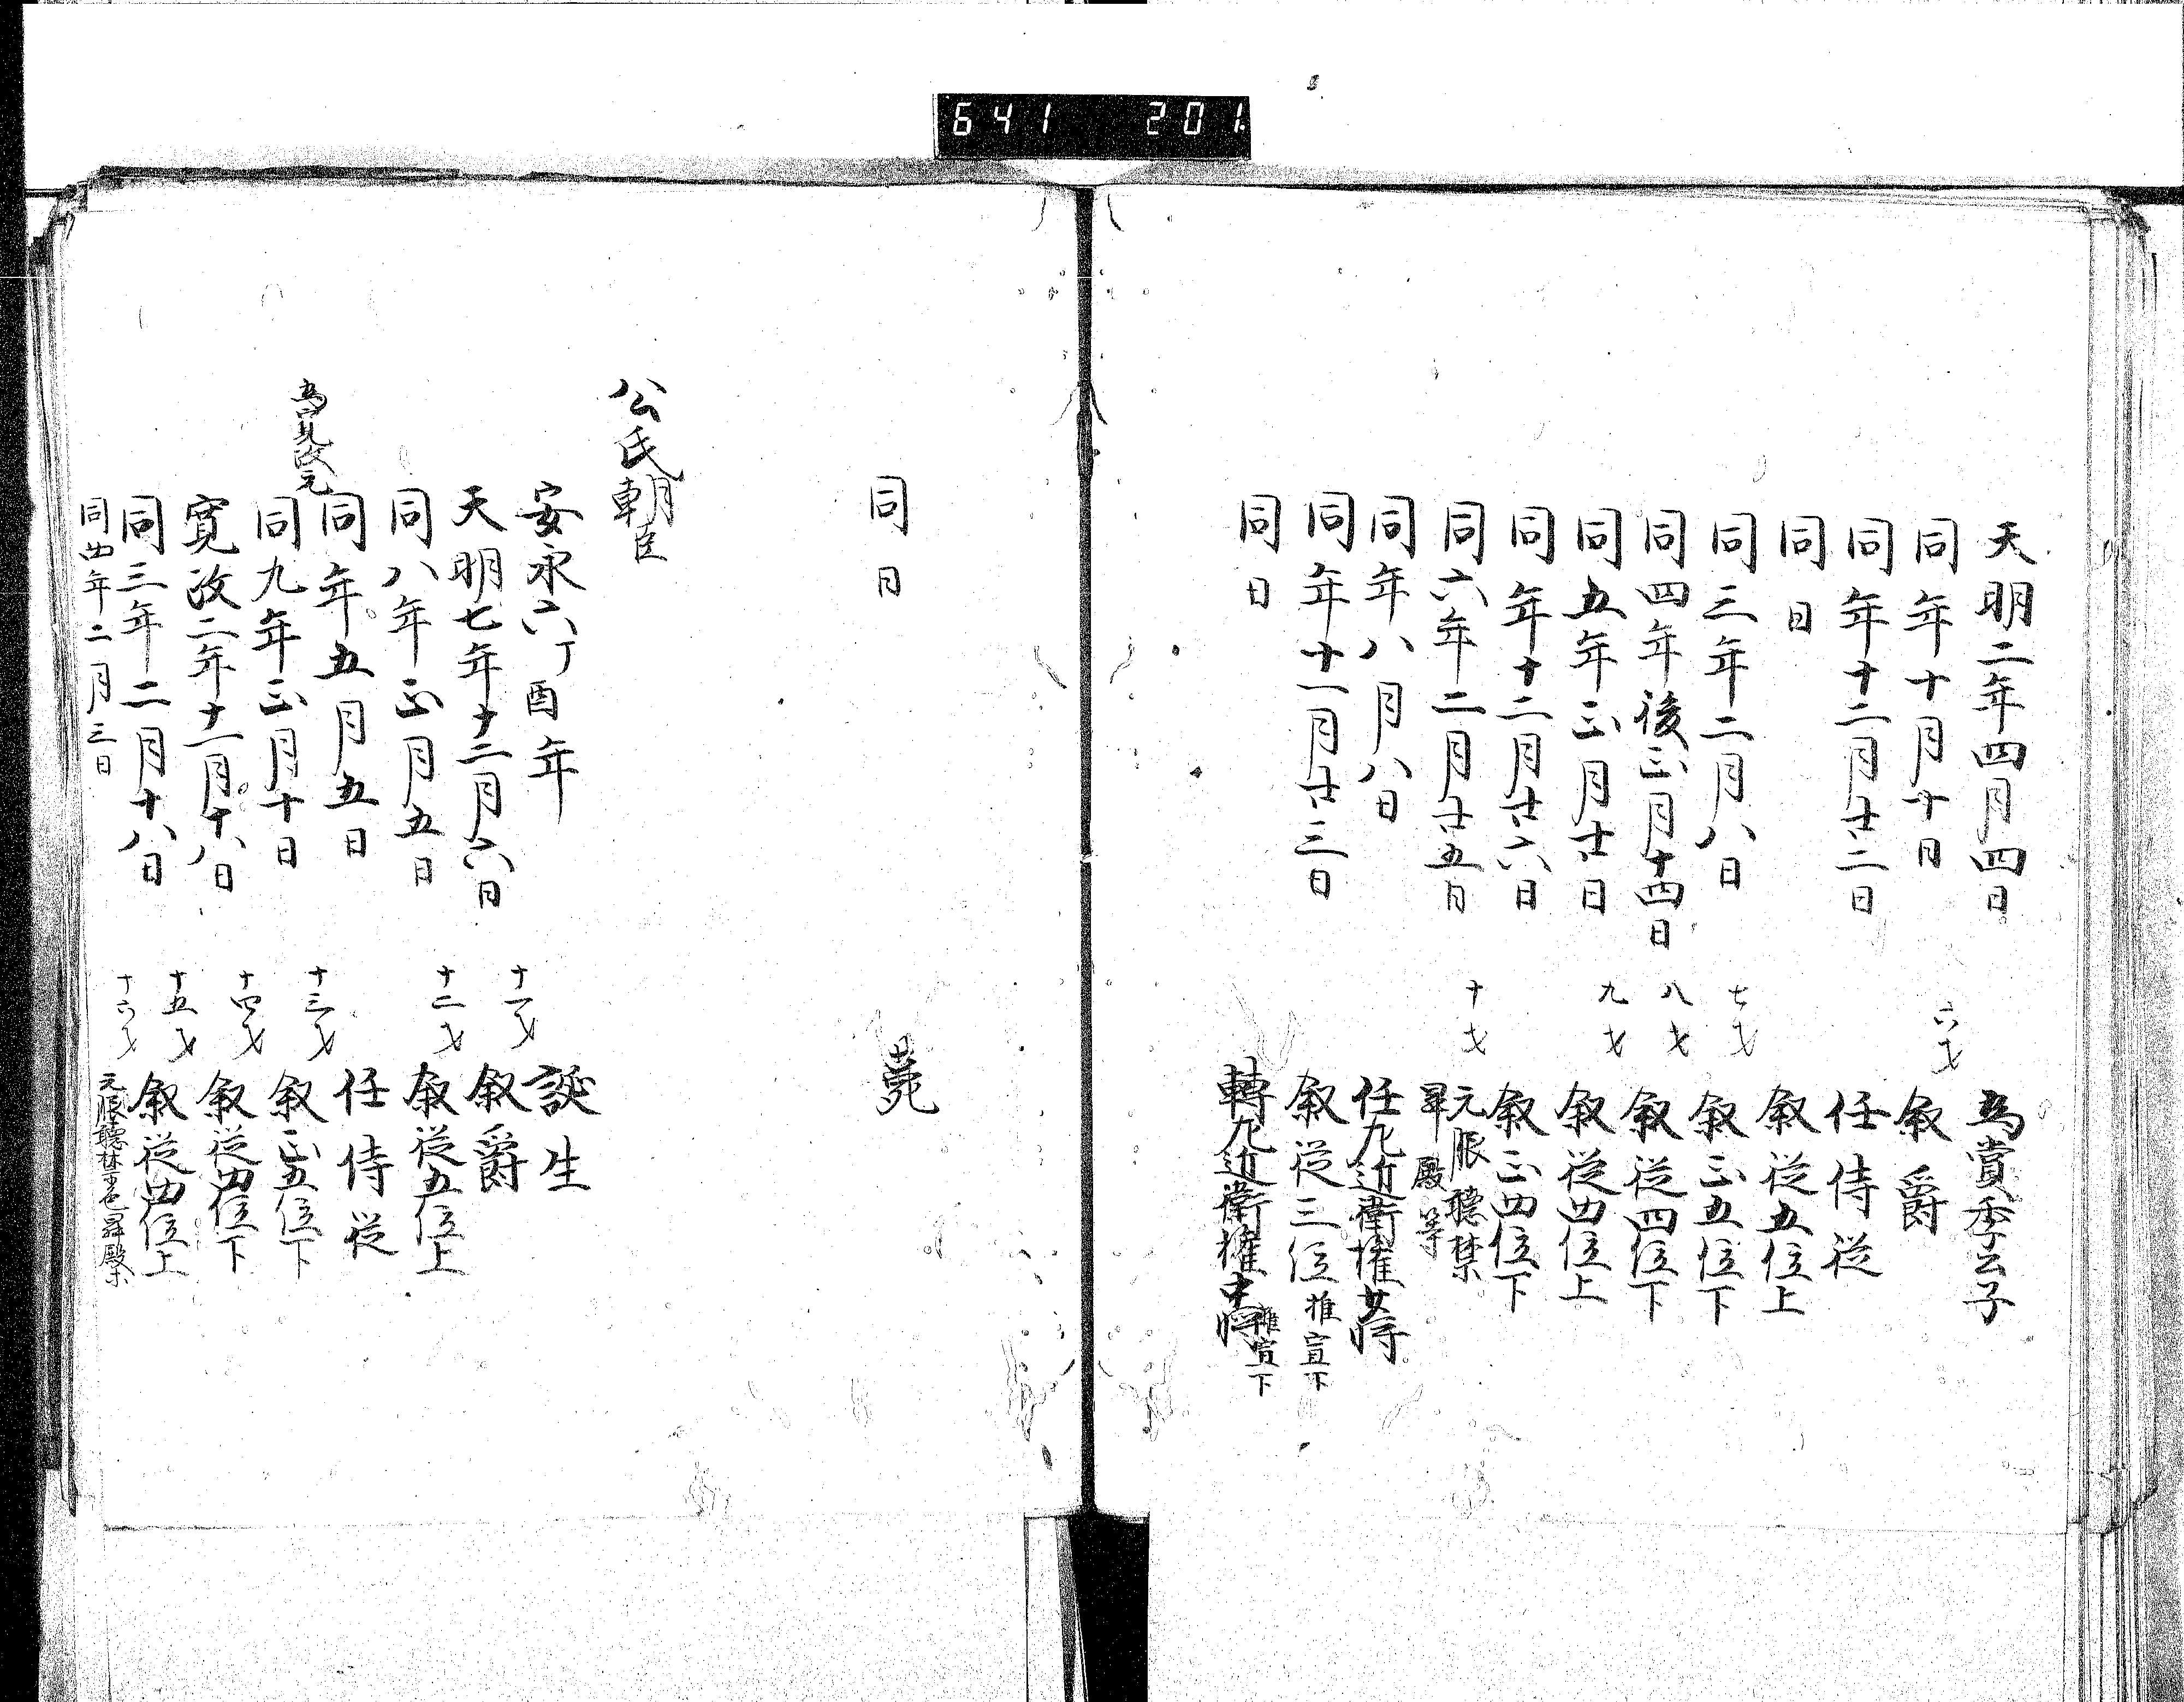 641 201
天明二年四月四日 為賞季公子
同年十月十日 六才 叙爵
同年十二月廿二日 任侍従
同日 叙従五位上
同三年二月八日 七才 叙正五位下
同四年後正月十四日 八才 叙従四位下
同五年正月廿日 九才 叙従四位上
同年十二月廿六日 叙正四位下
同六年二月廿五日 十才 元服聴禁
昇殿等
同年八月八日 任左近衛権少将
同年十一月廿三日 叙従三位推宣下
同日 轉左近衛権中将推宣下
同日 薨
公氏朝臣
安永六丁酉年 誕生
天明七年十二月六日 十一才 叙爵
同八年正月五日 十二才 叙従五位上
同年五月五日 任侍従
同九年正月十日 十三才 叙正五位下
為寛政元
寛政二年十一月十八日 十四才 叙従四位下
同三年二月十八日 十五才 叙従四位上
同四年二月三日 十六才 元服聴禁色昇殿等